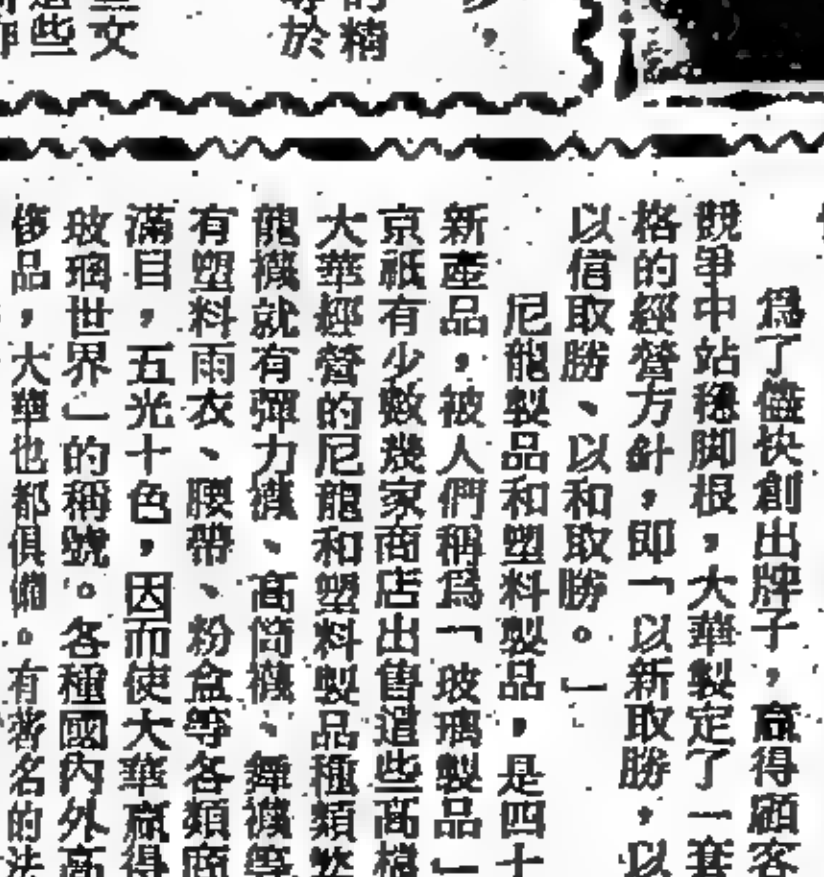 的精
等於
文
這些
爲了儘快創出牌子，贏得顧客
競爭中站穩脚根，大華製定了一套
格的經營方針，即「以新取勝，以
以信取勝、以和取勝。」
尼龍製品和塑料製品，是四十
新產品，被人們稱爲「玻璃製品」
京祇有少數幾家商店出售這些高檔
大華經營的尼龍和塑料製品種類繁
龍襪就有彈力襪、高筒襪、舞襪等
有塑料雨衣、腰帶、粉盒等各類商
滿目，五光十色，因而使大華贏得
玻璃世界」的稱號。各種國內外高
侈品，大華也都俱備。有著名的法